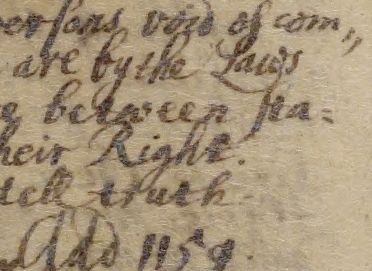 persons void of com„
are by the Laws
between sta=
heir Right.
tell truth.
Add 1159.